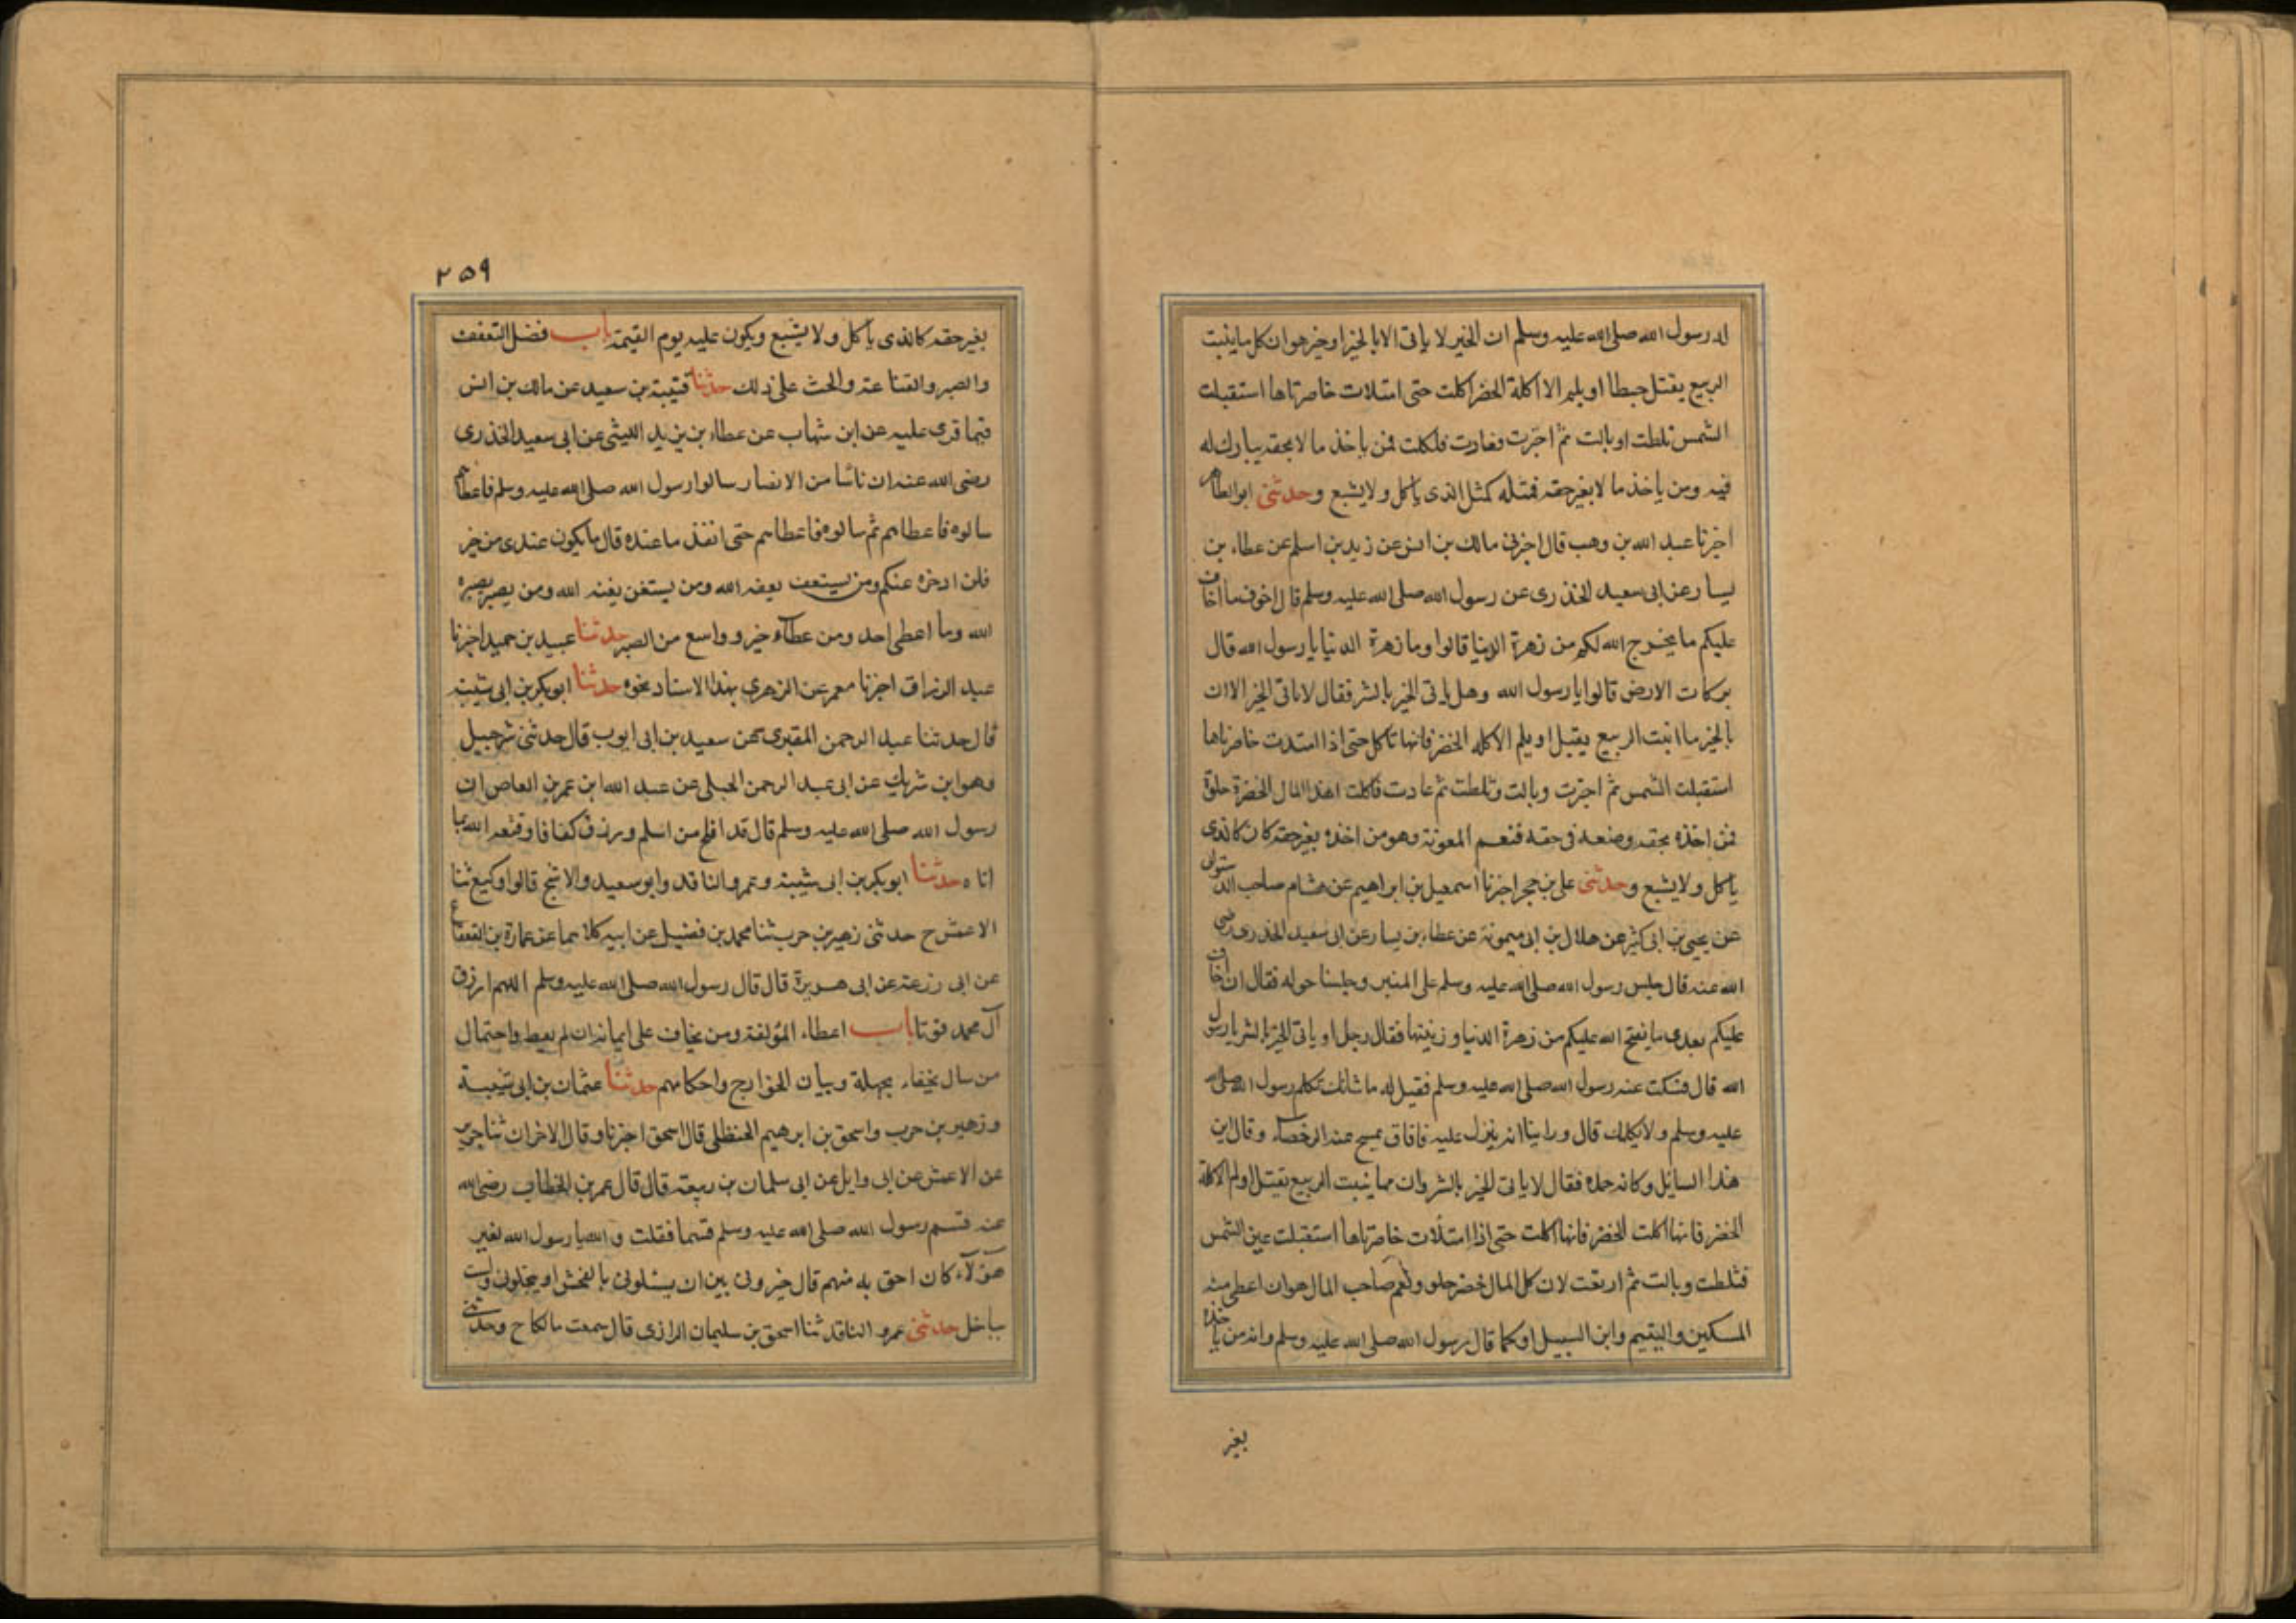 له رسول الله صلى الله عليه وسلم ان الخير لا ياتى الا بالخير او خير هو ان كل ما ينبت
الربيع يقتل حبطا او يلم الا اكلة الخضر اكلت حتى امتلات خاصرتاها استقبلت
الشمس ثلطت او بالت ثم اجترت فعادت فاكلت فمن ياخذ مالا بحقه يبارك له
فيه ومن ياخذ مالا بغير حقه فمثله كمثل الذى ياكل ولا يشبع وحدثنى ابو الطاهر
اخبرنا عبد الله بن وهب قال اخبرنى مالك بن انس عن زيد بن اسلم عن عطاء بن
يسار عن ابى سعيد الخذرى عن رسول الله صلى الله عليه وسلم قال اخوف ما اخاف
عليكم ما يخرج الله لكم من زهرة الدنيا قالوا وما زهرة الدنيا يا رسول الله قال
بركات الارض قالوا يا رسول الله وهل ياتى الخير بالشر فقال لا ياتى الخير الا ان
بالخير ما انبت الربيع يقتل او يلم الا كله الخضر فانها تاكل حتى اذا امتدت خاصرتاها
استقبلت الشمس ثم اجترت وبالت وثلطت ثم عادت فاكلت ان هذا المال الخضرة حلوة
فمن اخذه بحقه وضعه فى حقه فنعم المعونة وهو من اخذه بغير حقه كان كالذى
ياكل ولا يشبع وحدثنى على بن حجر اخبرنا اسمعيل بن ابراهيم عن هشام صاحب الدستوائى
عن يحيى بن ابى كثير عن هلال بن ابى ميمونة عن عطاء بن يسار عن ابى سعيد الخذرى رضى
الله عنه قال جلس رسول الله صلى الله عليه وسلم على المنبر وجلسنا حوله فقال ان اخاف
عليكم بعدى ما يفتح الله عليكم من زهرة الدنيا وزينتها فقال رجل او ياتى الخير بالشر يا رسول
الله قال فسكت عنه رسول الله صلى الله عليه وسلم فقيل له ما شانك تكلم رسول الله صلى الله
عليه وسلم ولا يكلمك قال وراينا انه ينزل عليه فافاق يمسح عنه الرخصاء وقال اين
هذا السايل وكانه حمده فقال لا ياتى الخير بالشر وان مما ينبت الربيع يقتل او يلم الا كلة
الخضر فانها اكلت الخضر فانها اكلت حتى اذا امتلات خاصرتاها استقبلت عين الشمس
فثلطت وبالت ثم ارتعت لان كل المال خضر حلو ونعم صاحب المال هو ان اعطى منه
المسكين واليتيم وابن السبيل او كما قال رسول الله صلى الله عليه وسلم وانه من ياخذه
بغير
٢٥٩
بغير حقه كالذى ياكل ولا يشبع ويكون عليه يوم القيمة باب فضل التعفف
والصبر والقناعة والحث على ذلك حدثنا قتيبة بن سعيد عن مالك بن انس
فيما قرى عليه عن ابن شهاب عن عطاء بن يزيد الليثى عن ابى سعيد الخذرى
رضى الله عنه ان ناسا من الانصار سالوا رسول الله صلى الله عليه وسلم فاعطاهم
سالوه فاعطاهم ثم سالوه فاعطاهم حتى انفذ ما عنده قال ما يكون عندى من خير
فلن ادخره عنكم ومن يستعف يعفه الله ومن يستغن يغنه الله ومن يصبر يصبره
الله وما اعطى احد ومن عطآء خير و واسع من الصبر حدثنا عبيد بن حميد اخبرنا
عبد الرزاق اخبرنا معمر عن الزهرى بهذا الاسناد نحوه حدثنا ابو بكر بن ابى شيبة
قال حدثنا عبد الرحمن المقبرى عن سعيد بن ابى ايوب قال حدثنى شرحبيل
وهو ابن شريك عن ابى عبد الرحمن الحبلى عن عبد الله ابن عمر بن العاص ان
رسول الله صلى الله عليه وسلم قال قد افلح من اسلم ورزق كفافا وقنعه الله بما
اتاه حدثنا ابو بكر بن ابى شيبة وعمرو الناقد وابو سعيد والاشج قالوا وكيع ثنا
الاعمش ح حدثنى زهير بن حرب ثنا محمد بن فضيل عن ابيه كلاهما عن عمارة بن القعقاع
عن ابى زرعة عن ابى هريرة قال قال رسول الله صلى الله عليه وسلم اللهم ارزق
آل محمد قوتا باب اعطاء المؤلفة ومن يخاف على ايمانه ان لم يعط واحتمال
من سال بخفاء بجهلة وبيان الخوارج واحكامهم حدثنا عثمان بن ابى شيبة
وزهير بن حرب واسحق بن ابرهيم الحنظلى قال اسحق اخبرنا وقال الاخران ثنا جرير
عن الاعمش عن ابى وايل عن ابى سلمان بن ربيعة قال قال عمر بن الخطاب رضى الله
عنه قسم رسول الله صلى الله عليه وسلم قسما فقلت و الله يا رسول الله لغير
هؤلآء كان احق به منهم قال خيرونى بين ان يسئلونى بالفحش او يبخلونى ولست
بباخل حدثنى عمرو الناقد ثنا اسحق بن سليمان الرازى قال سمعت مالكا ح وحدثنى